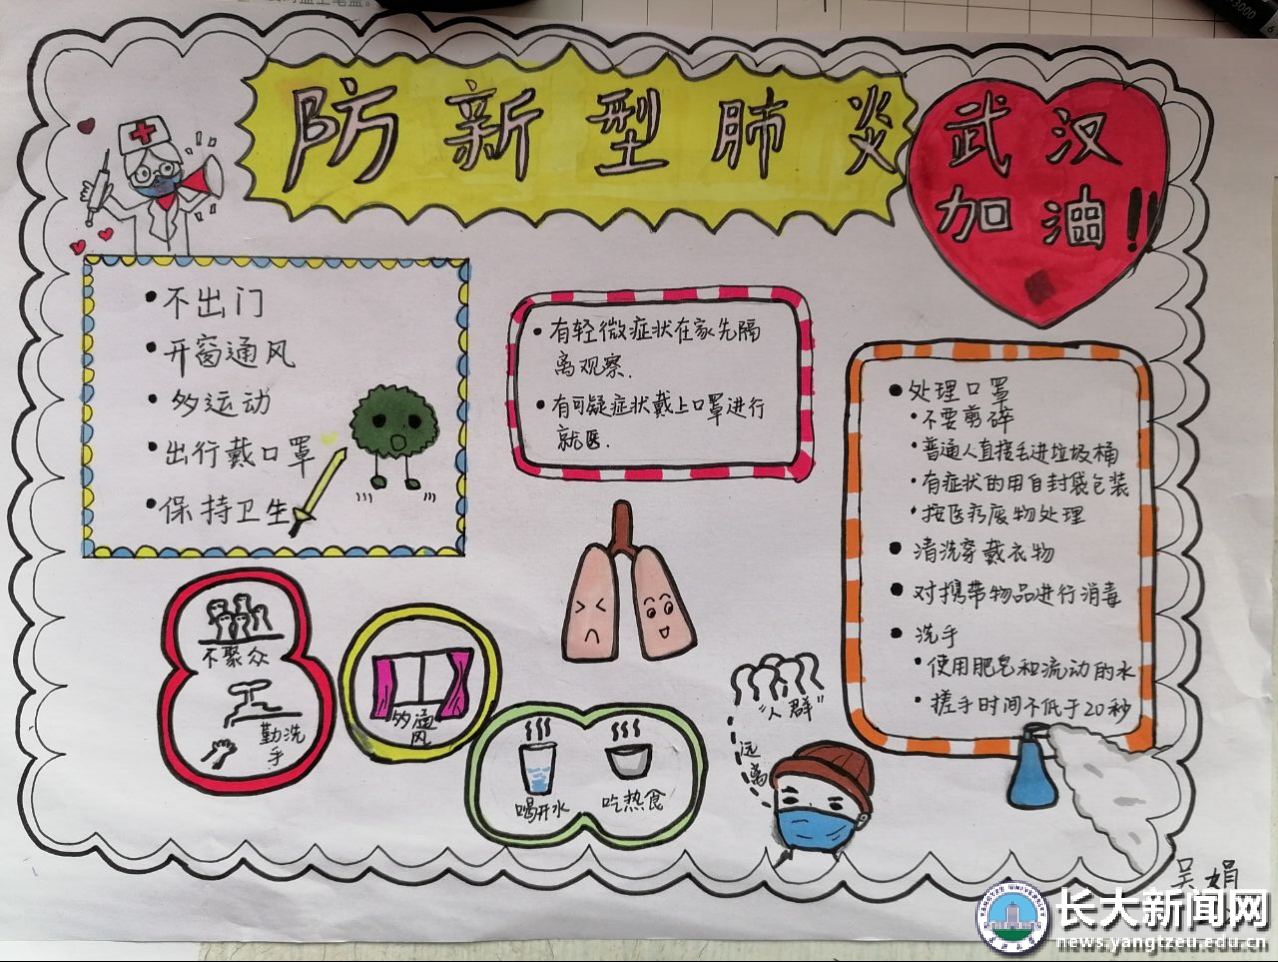 防新型肺炎
武汉
加油!!
•不出门
•开窗通风
•多运动
•出行戴口罩
•保持卫生
•有轻微症状在家先隔
离观察.
•有可疑症状戴上口罩进行
就医.
•处理口罩
•不要剪碎
•普通人直接丢进垃圾桶
•有症状的用自封袋包装
•按医疗废物处理
•清洗穿戴衣物
•对携带物品进行消毒
•洗手
•使用肥皂和流动的水
•搓手时间不低于20秒
不聚众
勤洗
手
多通
风
喝开水
吃热食
"人群"
远
离
吴娟
长大新闻网
news.yangtzeu.edu.cn